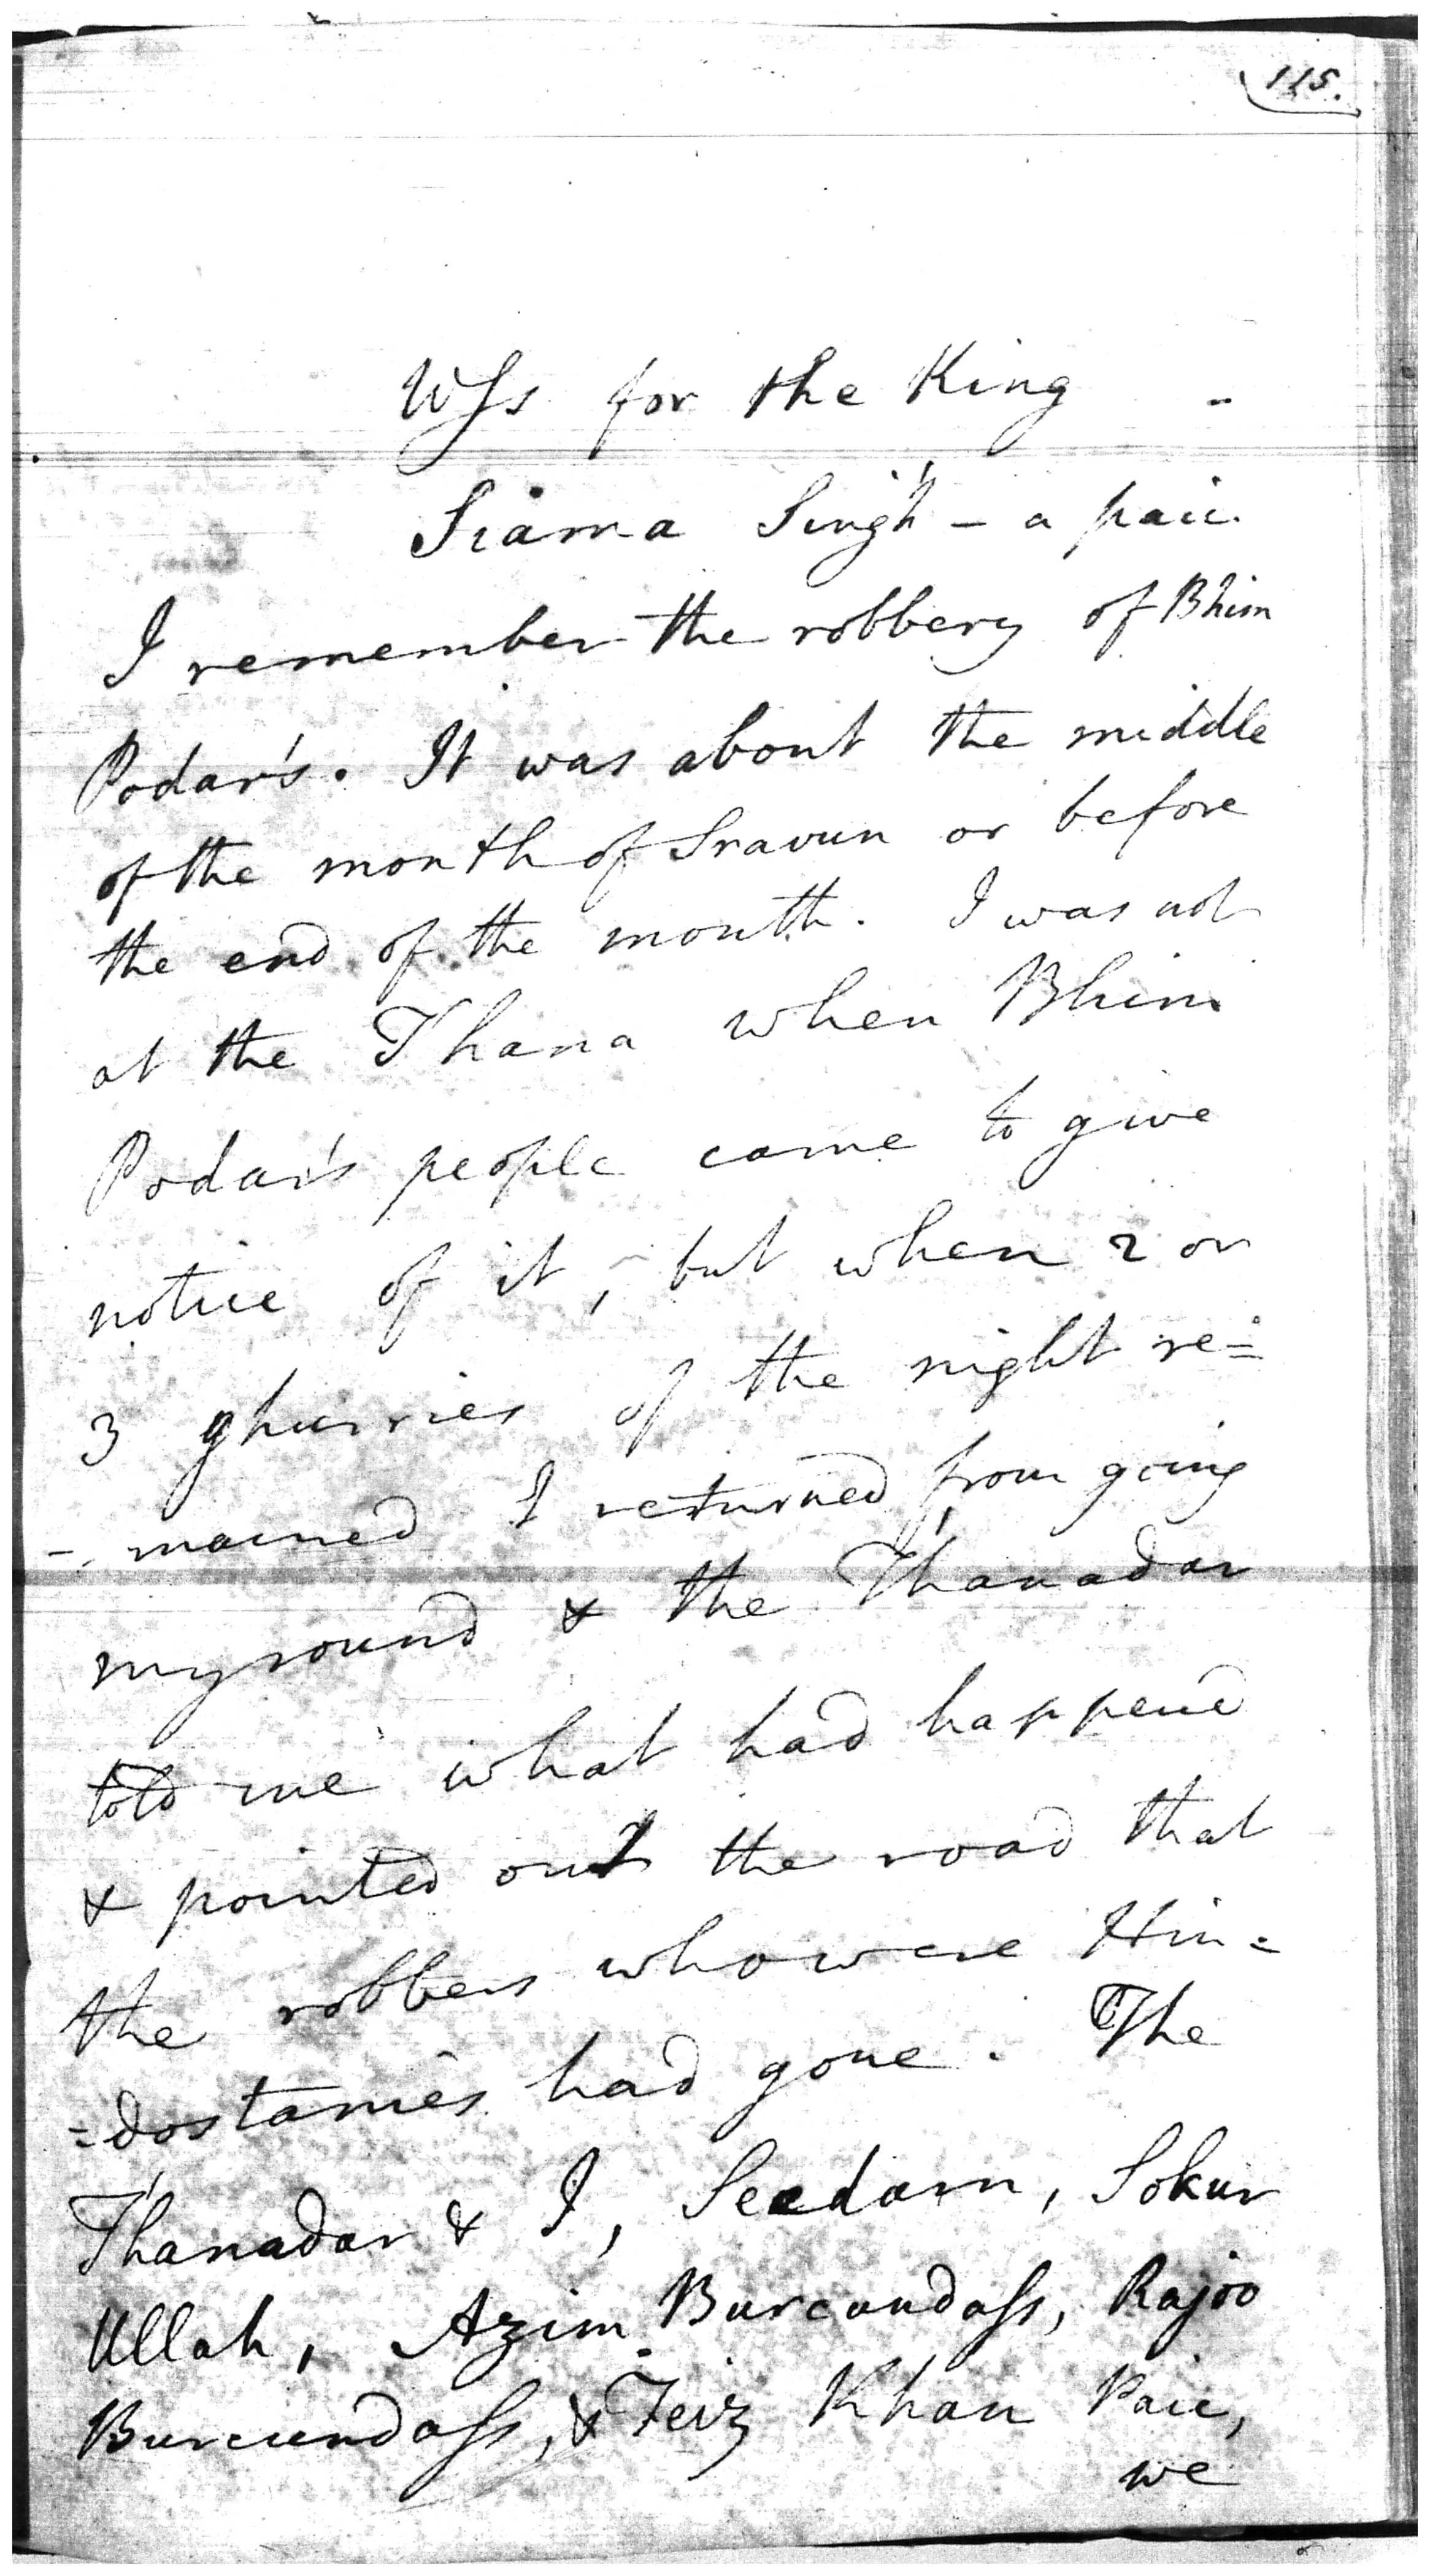 115.
Wss for the King -
Siama Singh - a paic.
I remember the robbery of Bhim
Podar's. It was about the middle
of the month of Sravun or before
the end of the month. I was not
at the Thana when Bhim
Podar's people came to give
notice of it, but when 2 or
3 ghurries of the night re=
-mained I returned from going
my round & the Thanadar
told me what had happend
& pointed out the road that
the robbers who were Hin=
=dostanies had gone. The
Thanadar & I, Seedam, Sokur
Ullah, Azim Burcundass, Rajoo
Burcundass, & Feiz Khan Paic,
we